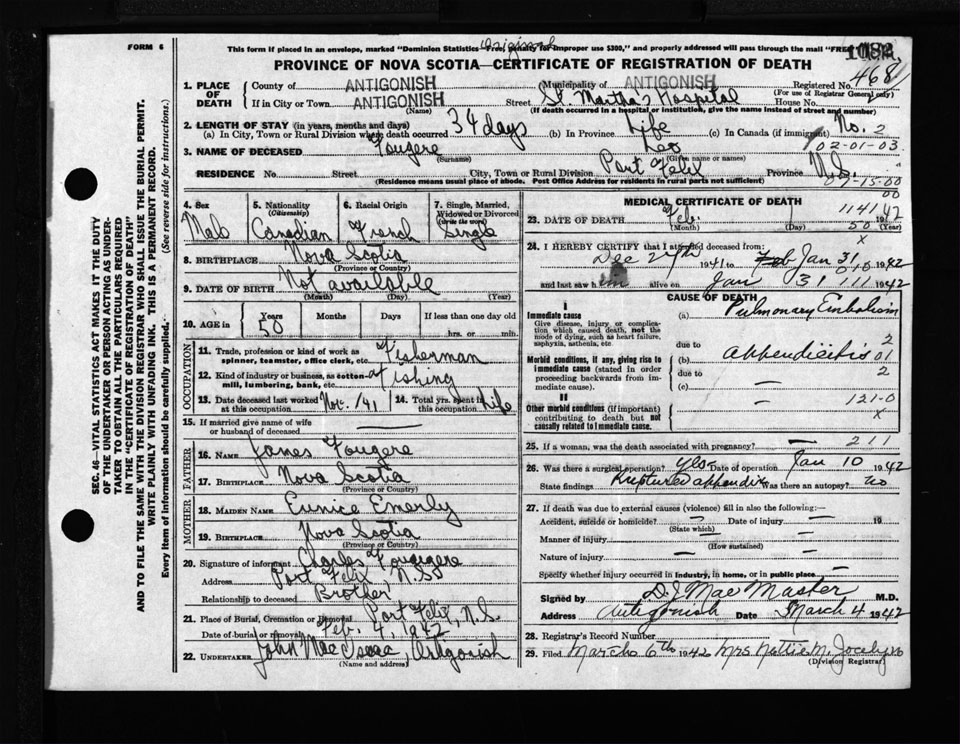 FORM 6
Original
This form if placed in an envelope, marked "Dominion Statistics—Free, Penalty for improper use $300," and properly addressed will pass through the mail "FREE
PROVINCE OF NOVA SCOTIA—CERTIFICATE OF REGISTRATION OF DEATH
1. PLACE OF DEATH
County of ANTIGONISH Municipality of ANTIGONISH Registered No. 468
(For use of Registrar General only)
If in City or Town ANTIGONISH Street St. Martha's Hospital House No.
(Name) (If death occurred in a hospital or institution, give the name instead of street and number)
2. LENGTH OF STAY (in years, months and days)
(a) In City, Town or Rural Division where death occurred 34 days (b) In Province Life (c) In Canada (if immigrant) No. 2
02-01-03
3. NAME OF DECEASED Fougere Leo
(Surname) (Given name or names)
RESIDENCE No. Street City, Town or Rural Division Port Felix Province N.S.
(Residence means usual place of abode. Post Office Address for residents in rural parts not sufficient)
07-15-00
00
4. Sex Male
5. Nationality (Citizenship) Canadian
6. Racial Origin French
7. Single, Married, Widowed or Divorced (write the word) Single
8. BIRTHPLACE Nova Scotia
(Province or Country)
9. DATE OF BIRTH Not available
(Month) (Day) (Year)
10. AGE in Years 50 Months Days If less than one day old hrs. or min.
OCCUPATION
11. Trade, profession or kind of work as spinner, teamster, office clerk, etc. Fisherman
12. Kind of industry or business, as cotton-mill, lumbering, bank, etc. Fishing
13. Date deceased last worked at this occupation Nov. /41 14. Total yrs. spent in this occupation Life
15. If married give name of wife or husband of deceased —
FATHER
16. NAME James Fougere
17. BIRTHPLACE Nova Scotia
(Province or Country)
MOTHER
18. MAIDEN NAME Eunice Emerly
19. BIRTHPLACE Nova Scotia
(Province or Country)
20. Signature of informant Charles Fougere
Address Port Felix, N.S.
Relationship to deceased Brother
21. Place of Burial, Cremation or Removal Port Felix, N.S.
Date of burial or removal Feb. 4, 1942
22. UNDERTAKER John MacIsaac, Antigonish
(Name and address)
MEDICAL CERTIFICATE OF DEATH
1141
23. DATE OF DEATH Feb. 1942
(Month) (Day) 50 (Year)
24. I HEREBY CERTIFY that I attended deceased from: X
Dec 29th 1941 to Jan 31 1942
and last saw him alive on Jan 31 1942
CAUSE OF DEATH
I
Immediate cause
Give disease, injury or complication which caused death, not the mode of dying, such as heart failure, asphyxia, asthenia, etc.
(a) Pulmonary Embolism
due to
2
Morbid conditions, if any, giving rise to immediate cause (stated in order proceeding backwards from immediate cause).
(b) appendicitis 01
due to 2
(c) —
II
121-0
Other morbid conditions (if important) contributing to death but not causally related to immediate cause.
— X
25. If a woman, was the death associated with pregnancy? — 211
26. Was there a surgical operation? Yes Date of operation Jan 10 1942
State findings Ruptured appendix Was there an autopsy? no
27. If death was due to external causes (violence) fill in also the following:—
Accident, suicide or homicide? — Date of injury — 19
(State which)
Manner of injury —
(How sustained)
Nature of injury — —
Specify whether injury occurred in industry, in home, or in public place —
Signed by D. J. MacMaster M.D.
Address Antigonish Date March 4 1942
28. Registrar's Record Number
29. Filed March 6th 1942 Mrs Nettie M. Jocelyn
(Division Registrar)
SEC. 46—VITAL STATISTICS ACT MAKES IT THE DUTY OF THE UNDERTAKER OR PERSON ACTING AS UNDERTAKER TO OBTAIN ALL THE PARTICULARS REQUIRED IN THE "CERTIFICATE OF REGISTRATION OF DEATH" AND TO FILE THE SAME WITH THE DIVISION REGISTRAR WHO SHALL ISSUE THE BURIAL PERMIT.
WRITE PLAINLY WITH UNFADING INK. THIS IS A PERMANENT RECORD.
Every item of information should be carefully supplied. (See reverse side for instructions.)